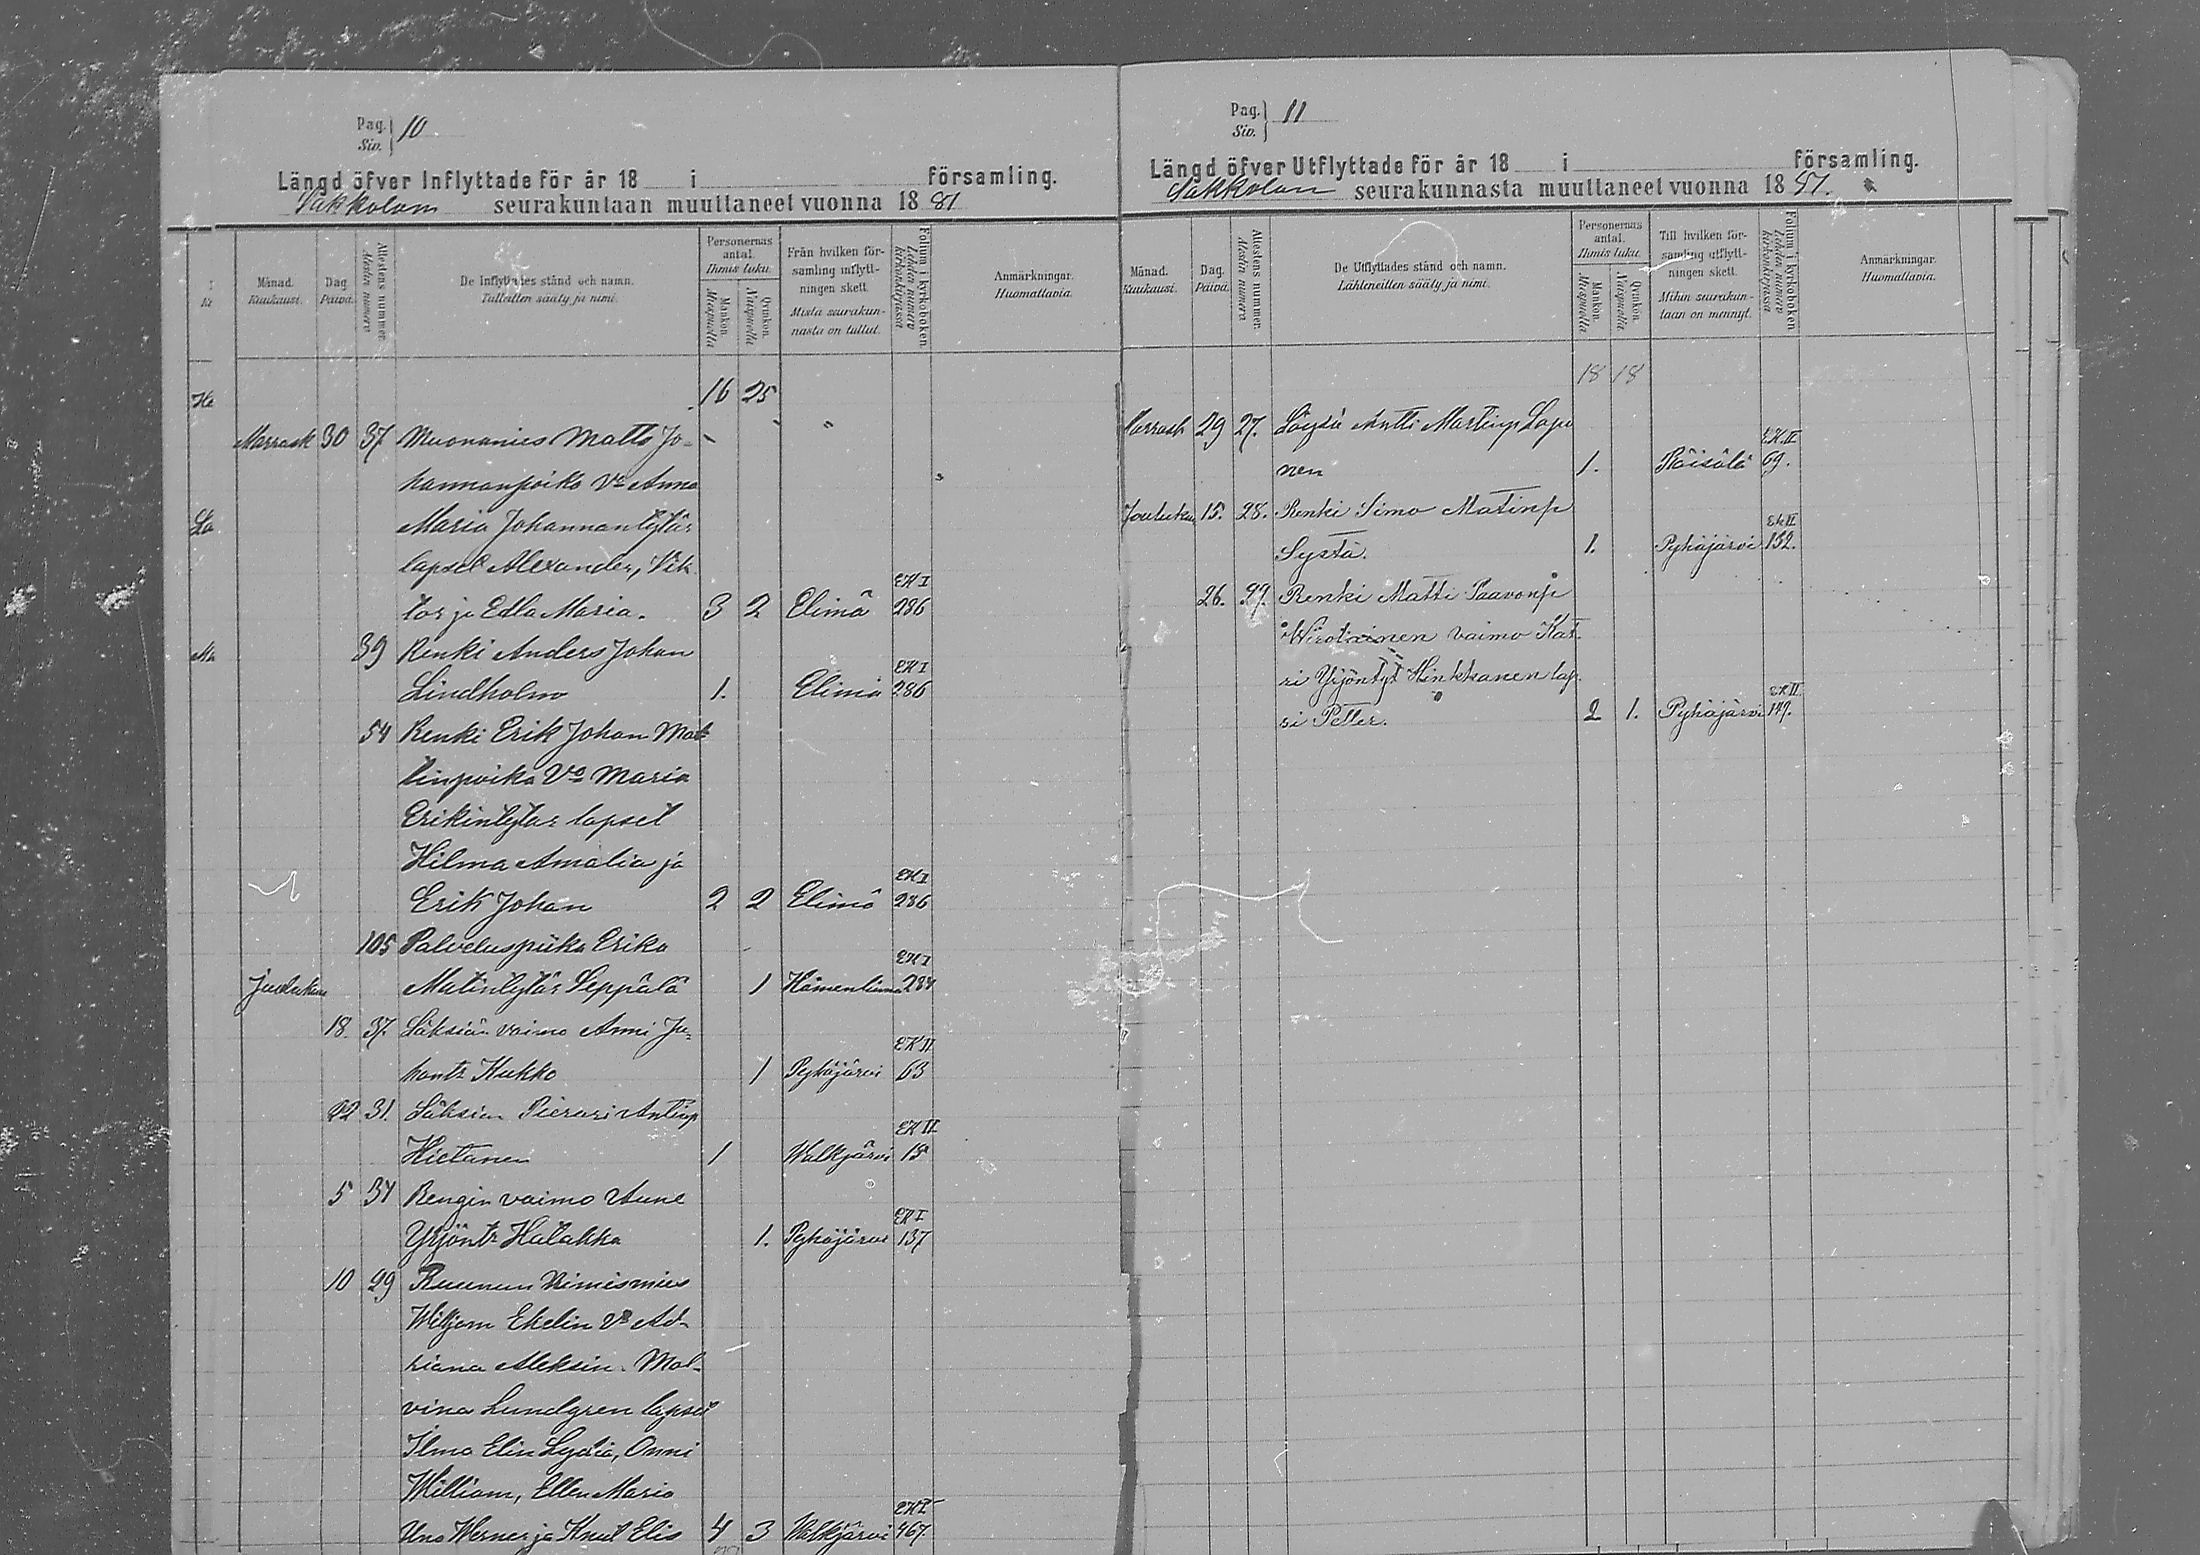 Pag.
Siv. 10
Längd öfver Inflyttade för år 18 i församling.
Sakkolam seurakuntaan muuttaneet vuonna 18 81
Månad. Kuukausi.
Dag Päivä.
Attestens nummer Atestin numero
De Inflyttades stånd och namn. Tulleitten sääty ja nimi.
Personernas antal. Ihmis luku.
Mankön. Miespuolia
Qvinkön. Naispuolia
Från hvilken församling inflyttningen skett. Mistä seurakunnasta on tullut.
Folium i kyrkoboken. Lehden numero kirkonkirjassa
Anmärkningar. Huomattavia.
16 25
Marrask 30 37 Muonamies Matts Jo-
hannanpoika Vo Anna
Maria Johannantytär
lapset Alexander, Vik
EK I
tor ja Edla Maria. 3 2 Elimä 286
39 Renki Anders Johan
EK I
Lindholm 1. Elimä 286
54 Renki Erik Johan Mat
tinpoika Vo Maria
Erikintytär lapset
Hilma Amalia ja
EK I
Erik Johan 2 2 Elimä 286
105 Palveluspiika Erika
EK I
Joulukuu Matintytär Seppälä 1 Hämenlinna 284
18. 37. Läksiän vaimo Anni Ju-
EK II
hontr Kukko 1 Pyhäjärvi 63
22 31. Läksiän Pieruri Antinp
EK II
Hietanen 1 Walkjärvi 18
5 34 Rengin vaimo Aune
EK I
Yrjöntr Hatakka 1. Pyhäjärvi 137
10 29 Ruunun Nimismies
Wiljam Ekelin Vo Ad-
riana Aleksin. Mal-
vina Lundgren lapset
Ilma Elin Lydia, Onni
William, Ellen Maria
EK I
Uno Werner ja Knut Elis 4 3 Walkjärvi 467.
Pag.
Siv. 11
Längd öfver Utflyttade för år 18 i församling.
Sakkolan seurakunnasta muuttaneet vuonna 18 81.
Månad. Kuukausi.
Dag. Päivä.
Attestens nummer. Atestin numero
De Utflyttades stånd och namn. Lähteneitten sääty ja nimi.
Personernas antal. Ihmis luku.
Mankön. Miespuolia
Qvinkön. Naispuolia
Till hvilken församling utflyttningen skett. Mihin seurakuntaan on mennyt.
Folium i kyrkoboken. Lehden numero kirkonkirjassa
Anmärkningar. Huomattavia.
18 18
Marrask 29 27. Antti Martinp Lapo
EK. II
nen 1. Räisälä 69.
Joulukuu 15. 28. Renki Simo Matinp
EK II
Systä. 1. Pyhäjärvi 152.
26. 29. Renki Matti Paavonp
Wirolainen vaimo Kat-
ri Yrjöntyt Hinkkanen lap
EK II
si Petter. 2 1. Pyhäjärvi 147.